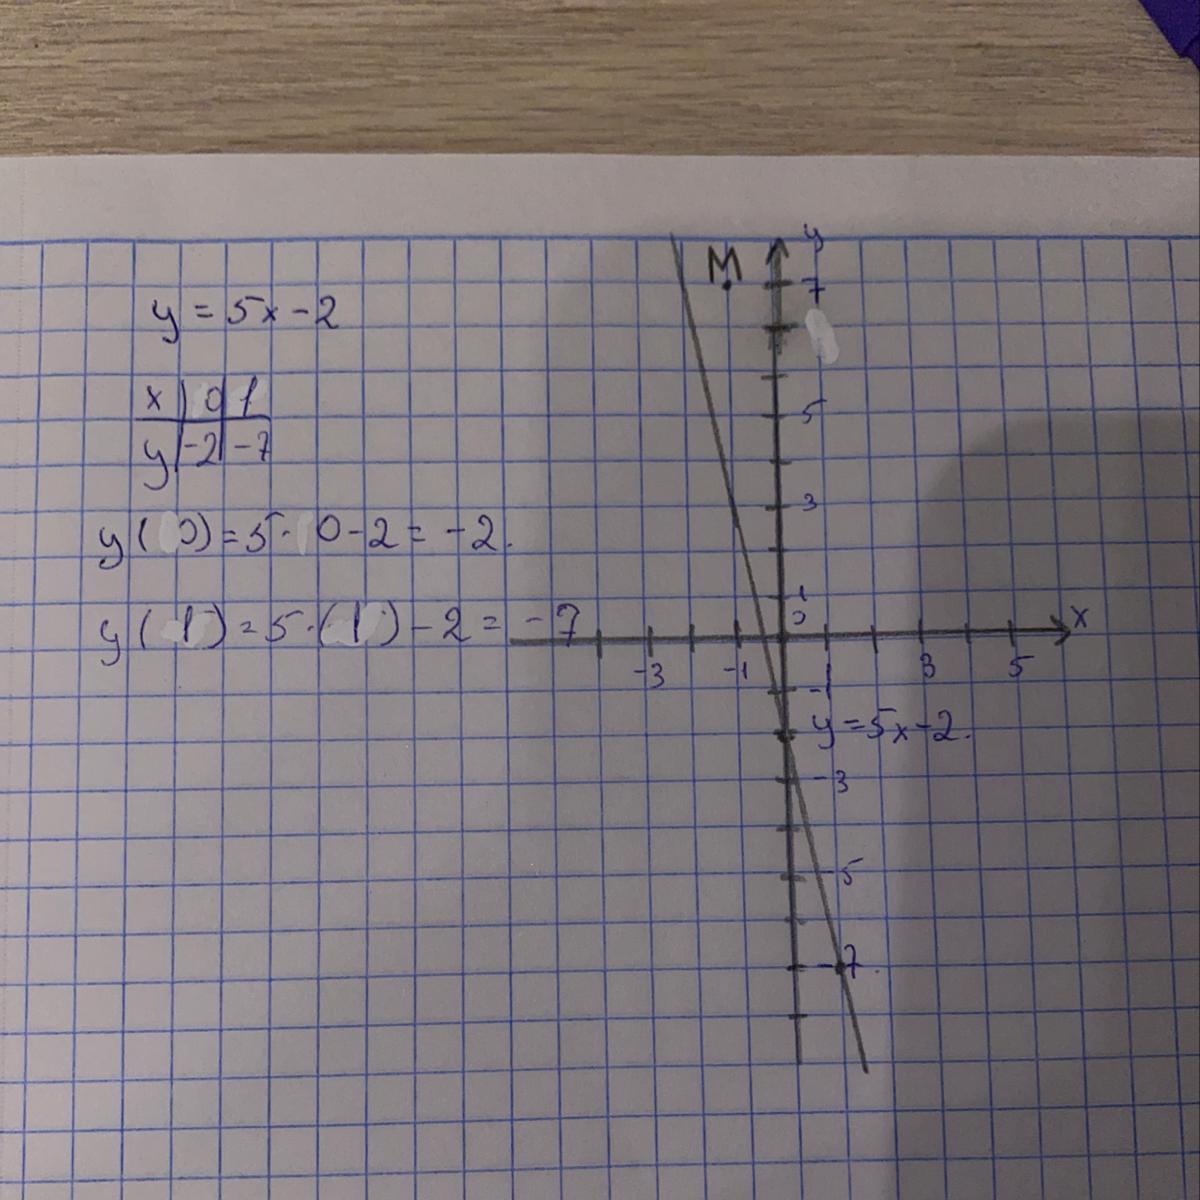 y = 5x - 2
x | 0 | 1
y | -2 | -7
y(0) = 5·0 - 2 = -2.
y(1) = 5·(1) - 2 = -7
M
y
7
5
3
1
0
x
-3 -1 3 5
-1
y = 5x - 2.
-3
-5
-7